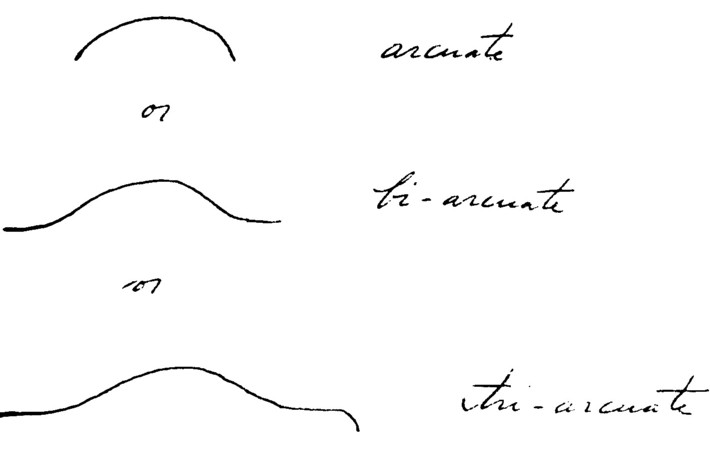 arcuate
or
bi-arcuate
or
tri-arcuate